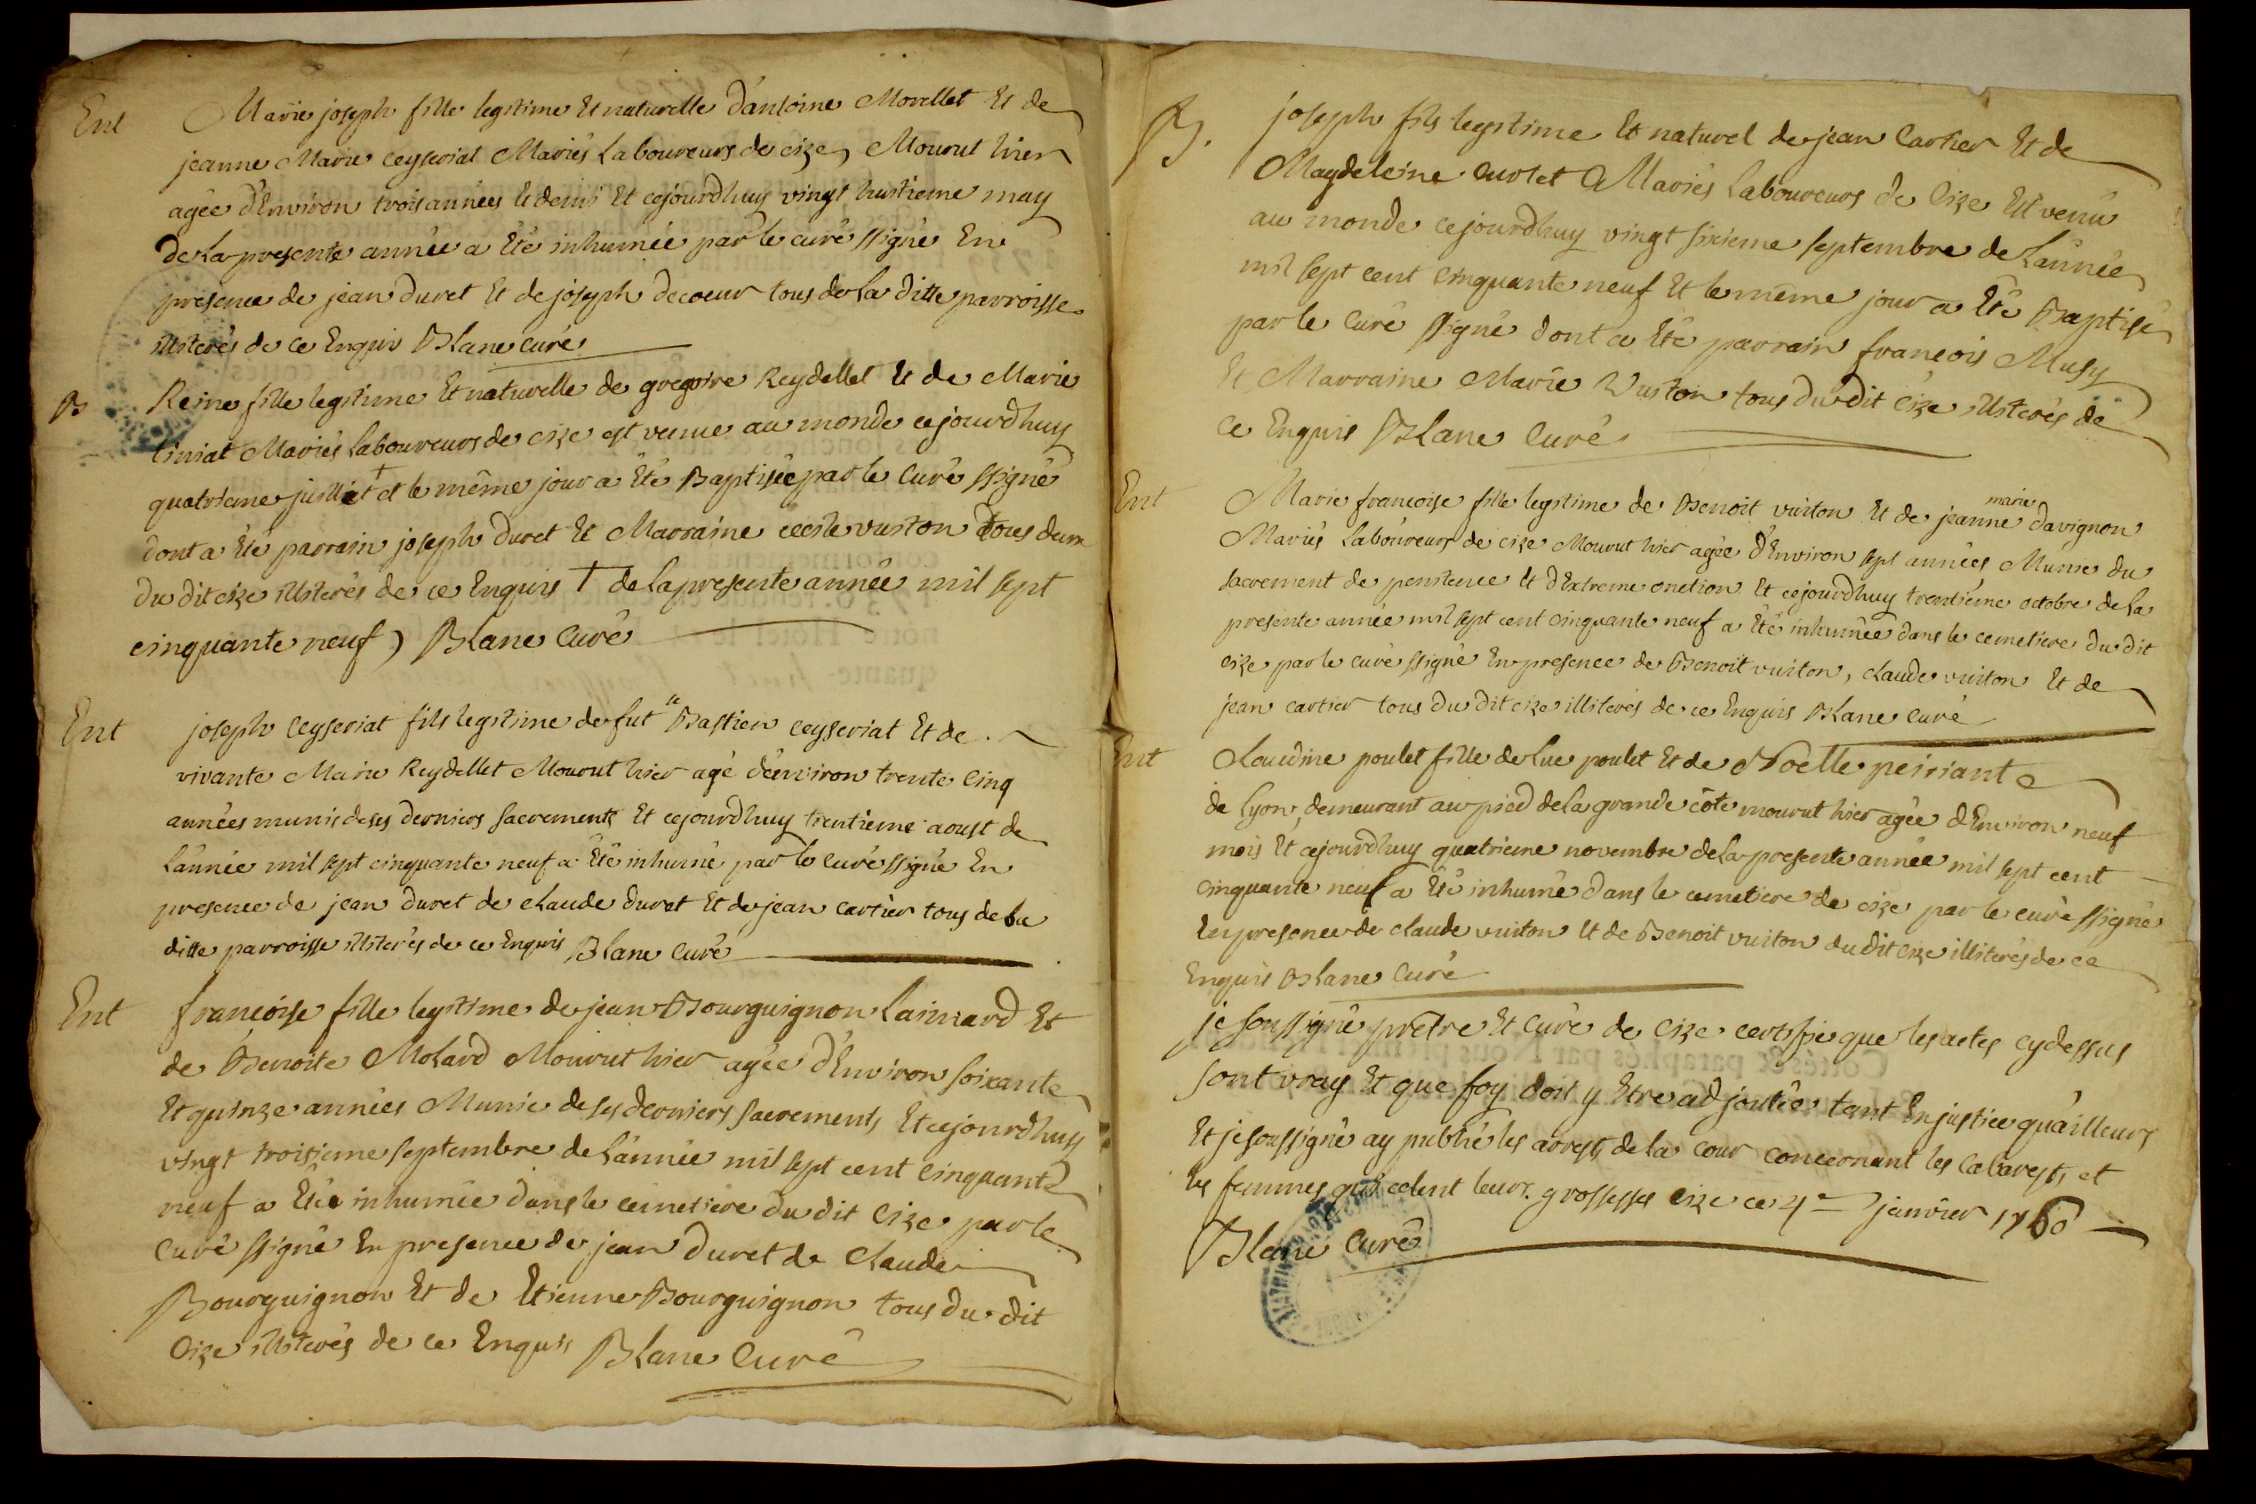 Ent
Marie joseph fille legitime Et naturelle d'antoine Morellet Et de
jeanne Marie ceyseriat Mariés Laboureurs de cize Mourut hier
agée d'Environ trois années Et demi Et cejourdhuy vingt huitieme may
de La presente année a Eté inhumée par le curé ssigné En
presence de jean duret Et de joseph decoeur tous de La ditte parroisse
illiterés de ce Enquis Blanc curé
B
Reine fille legitime Et naturelle de gregoire Reydellet Et de Marie
Mariés Laboureurs de cize est venue au monde cejourdhuy
quatrieme juillet † et le même jour a Eté Baptisée par le Curé ssigné
dont a Eté parrain joseph duret Et Marraine cecile vuiton tous deux
du dit cize illiterés de ce Enquis † de la presente année mil sept
cinquante neuf) Blanc Curé
Ent
joseph Ceyseriat fils legitime de fut Bastien ceyseriat Et de
vivante Marie Reydellet Mourut hier agé d'environ trente Cinq
années munis de ses derniers Sacrements Et cejourdhuy trentieme aoust de
L'année mil sept cinquante neuf a Eté inhumé par le Curé ssigné En
presence de jean duret de claude duret Et de jean cartier tous de la
ditte parroisse illiterés de ce Enquis Blanc Curé
Ent
francoise fille legitime de jean Bourguignon Et
de Benoite Molard Mourut hier agée d'Environ soixante
Et quinze années Munie de ses derniers sacrements Et cejourdhuy
vingt troisieme septembre de L'année mil sept cent Cinquante
neuf a Etée inhumée dans le cemetiere du dit Cize par le
Curé ssigné En presence de jean duret de Claude
Bourguignon Et de Etienne Bourguignon tous du dit
Cize illiterés de ce Enquis Blanc Curé
B.
joseph fils legitime Et naturel de jean Cartier Et de
Magdeleine curlet Mariés Laboureurs de Cize Est venu
au monde cejourdhuy vingt sixieme septembre de L'année
mil sept cent Cinquante neuf Et le même jour a Eté Baptisé
par le Curé ssigné dont a Eté parrain francois Musy
Et Marraine Marie Vuiton tous du dit Cize illiterés de
Ce Enquis Blanc Curé
Ent
Marie francoise fille legitime de Benoit vuiton Et de jeanne marie davignon
Mariés Laboureurs de cize Mourut hier agée d'Environ sept années Munie du
sacrement de penitence Et d'Extreme onction Et cejourdhuy trentieme octobre de La
presente année mil sept cent cinquante neuf a Eté inhumée dans le cemetiere du dit
cize par le curé ssigné En presence de Benoit vuiton, claude vuiton Et de
jean cartier tous du dit cize illiterés de ce Enquis Blanc curé
Ent
Claudine poulet fille de Luc poulet Et de Noelle
de Lyon, demeurant au pied de la grande côte mourut hier agée d'Environ neuf
mois Et cejourdhuy quatrieme novembre de La presente année mil sept cent
cinquante neuf a Eté inhumé dans le cemetiere de cize par le curé ssigné
En presence de claude vuiton Et de Benoit vuiton du dit cize illiterés de ce
Enquis Blanc Curé
je soussigné prêtre Et Curé de Cize certifie que les actes cydessus
sont vray Et que foy doit y Etre adjoutée tant En justice qu'ailleurs
Et je soussigné ay publié les arrests de la Cour concernant les Cabarests et
les femmes qui celent leurs grossesses cize ce 4e janvier 1760
Blanc Curé